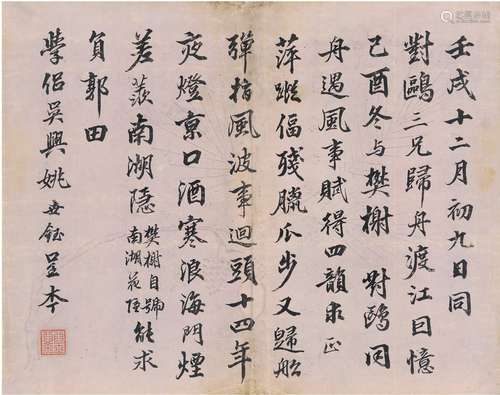 壬戌十二月初九日同
對鷗三兄歸舟渡江曰憶
己酉冬与樊榭對鷗同
舟遇風事賦得四韻求正
萍蹤偪殘臘瓜步又歸船
彈指風波事迴頭十四年
夜燈京口酒寒浪海門煙
羨煞南湖隱樊榭自號南湖花隱能求
負郭田
學侶吳興姚世鈺呈本